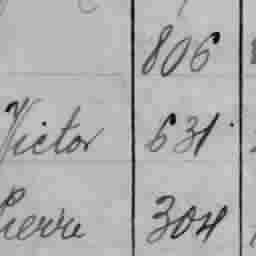 806
Victor 631
Pierre 304